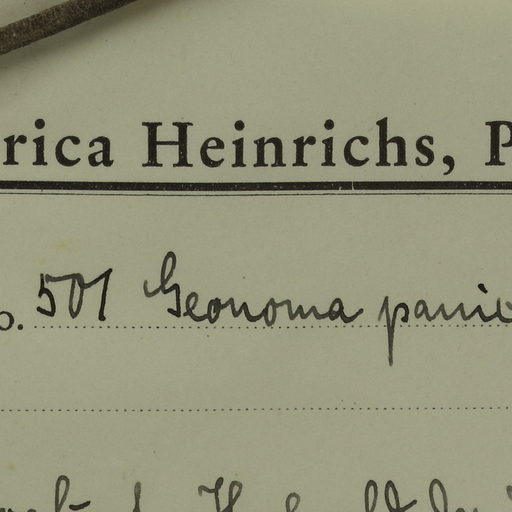 rica Heinrichs, P
o. 501 Geonoma panic